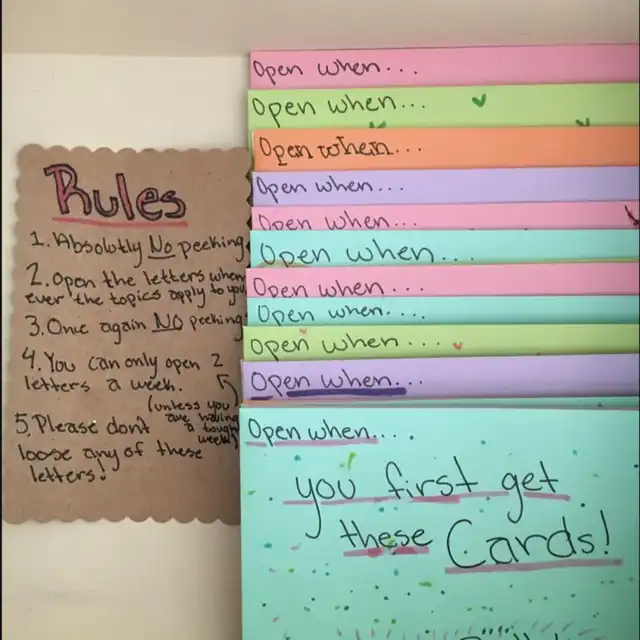 Rules
1. Absolutly No peeking.
2. Open the letters when
ever the topics apply to you
3. Once again NO peeking
4. You can only open 2
letters a week.
(unless you
are having
a tough
week)
5. Please don't
loose any of these
letters!
Open when...
Open when...
Open when...
Open when...
Open when...
Open when...
Open when...
Open when....
Open when....
Open when...
Open when....
you first get
these Cards!